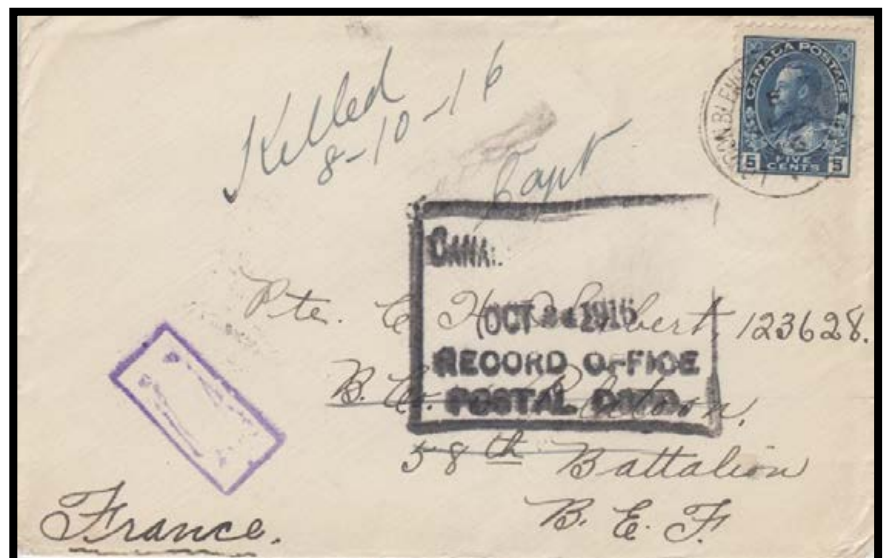 Killed
8-10-16
Capt
CANADA POSTAGE
5 FIVE CENTS 5
CANA.
OCT 1916
RECORD OFFICE
POSTAL DEPT.
Pte. C. H. 123628.
B. Co.
58th Battalion
B. E. F.
France.